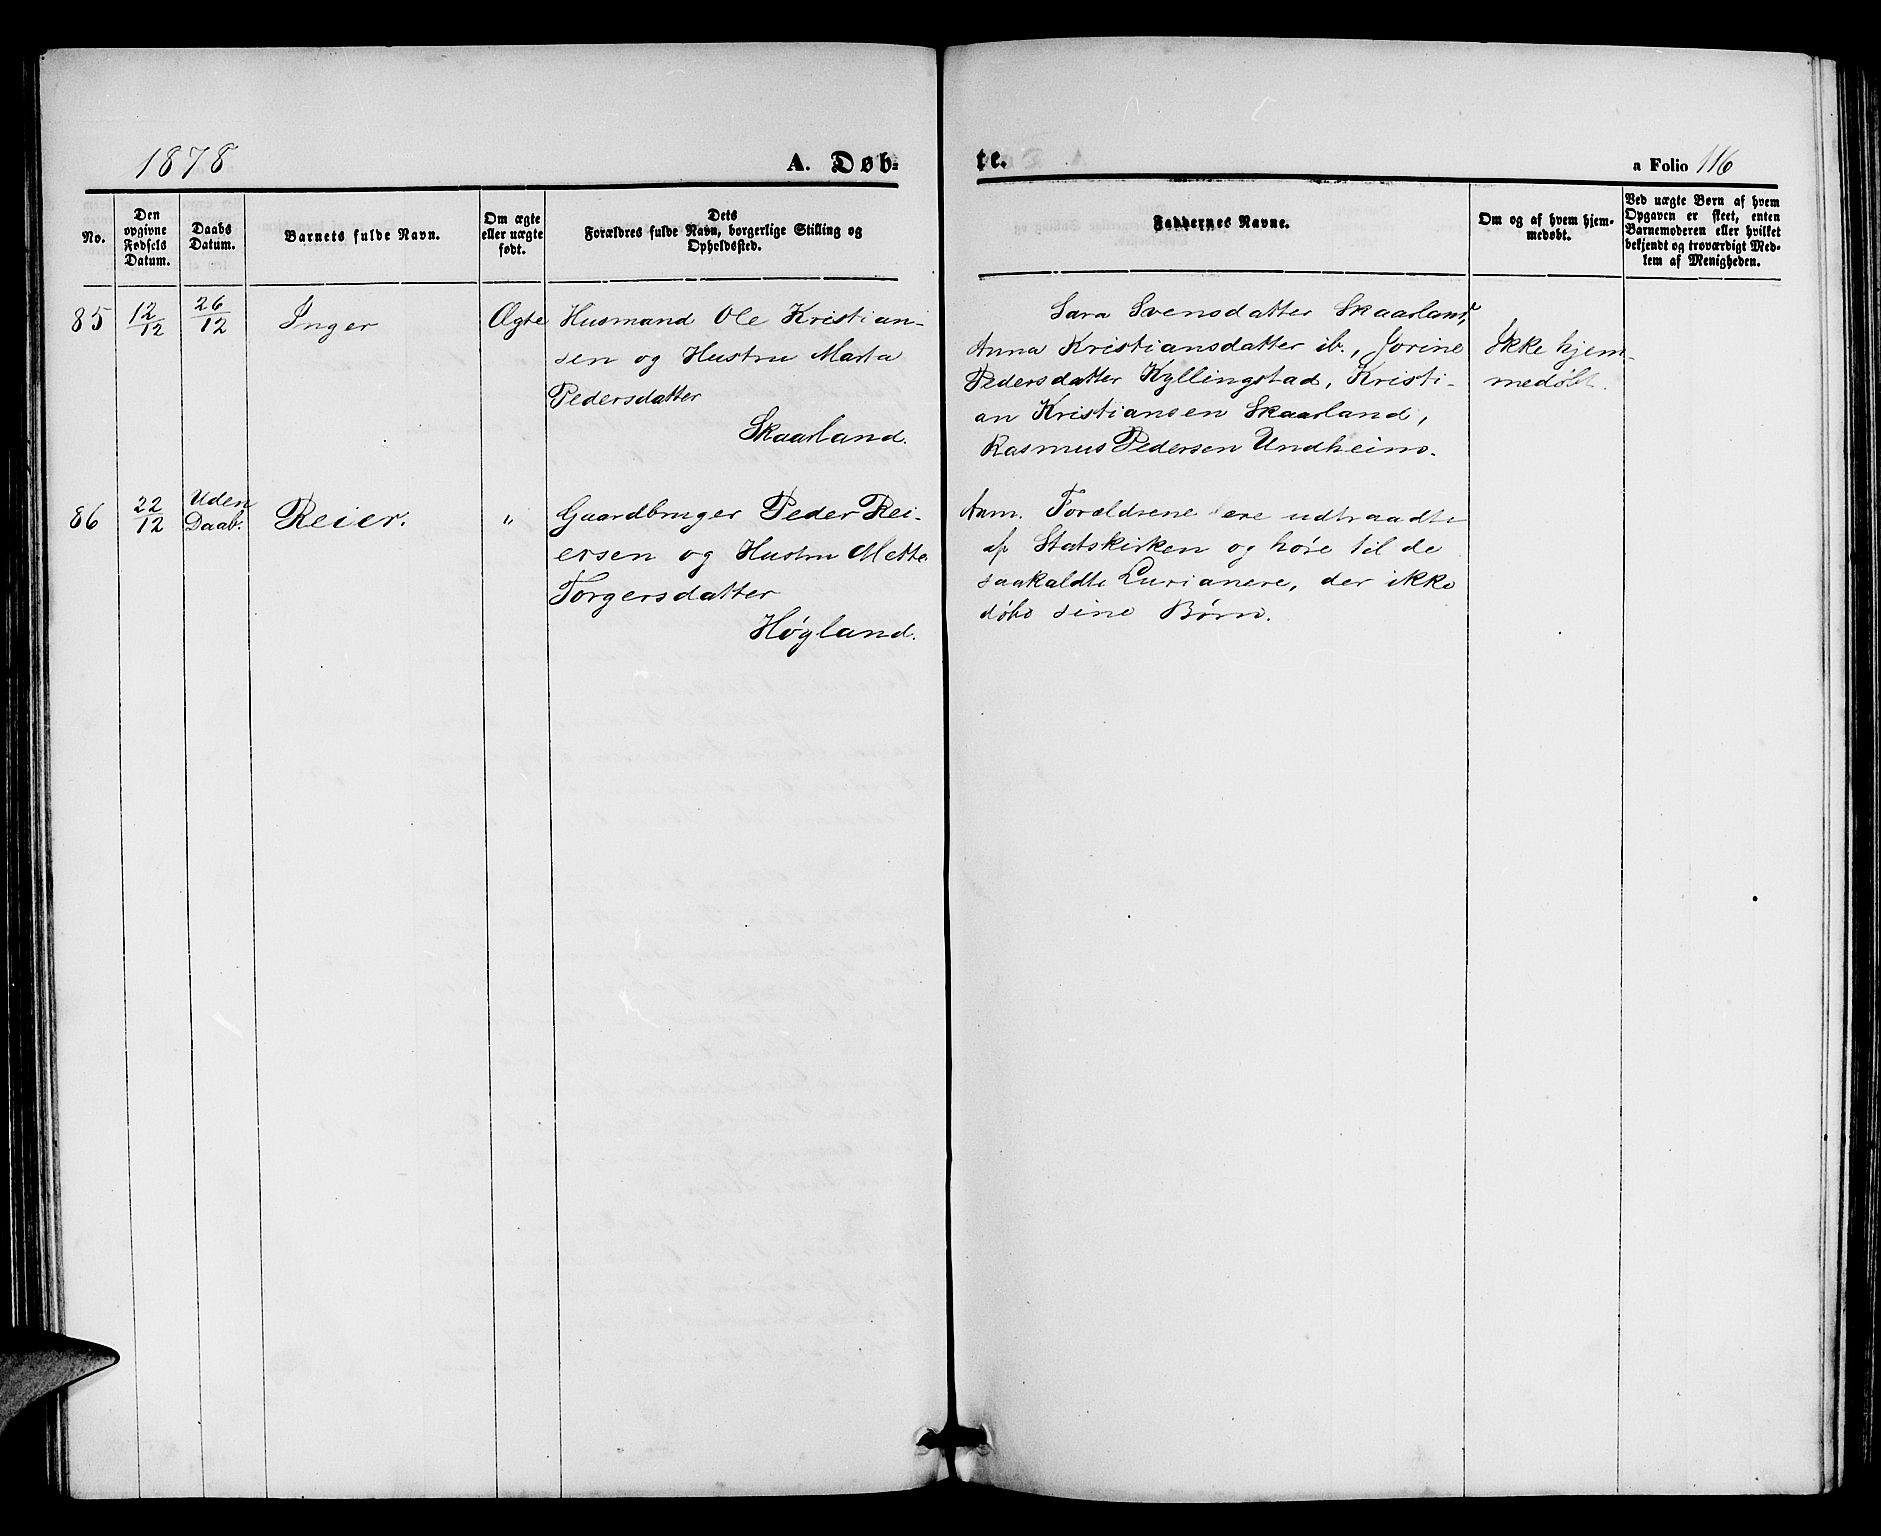 1878
A. Døb-
te.
a Folio 116
No.
Den
opgivne
Fødsels
Datum.
Daabs
Datum.
Barnets fulde Navn.
Om ægte
eller uægte
født.
Dets
Forældres fulde Navn, borgerlige Stilling og
Opholdssted.
Faddernes Navne.
Om og af hvem hjem-
medøbt.
Ved uægte Børn af hvem
Opgaven er skeet, enten
Barnemoderen eller hvilket
bekjendt og troværdigt Med-
lem af Menigheden.
85
12/12
26/12
Inger
Ægte
Husmand Ole Kristian-
sen og Hustru Marta
Pedersdatter
Skaarland.
Sara Svensdatter Skaarland,
Anna Kristiansdatter ib., Jorine
Pedersdatter Kyllingstad, Kristi-
an Kristiansen Skaarland,
Rasmus Pedersen Undheim.
Ikke hjem-
medøbt.
86
22/12
Uden
Daab.
Reier.
"
Gaardbruger Peder Rei-
ersen og Hustru Mette
Torgersdatter
Høgland.
Anm. Forældrene ere udtraadte
af Statskirken og høre til de
saakaldte Lurianere, der ikke
døbe sine Børn.